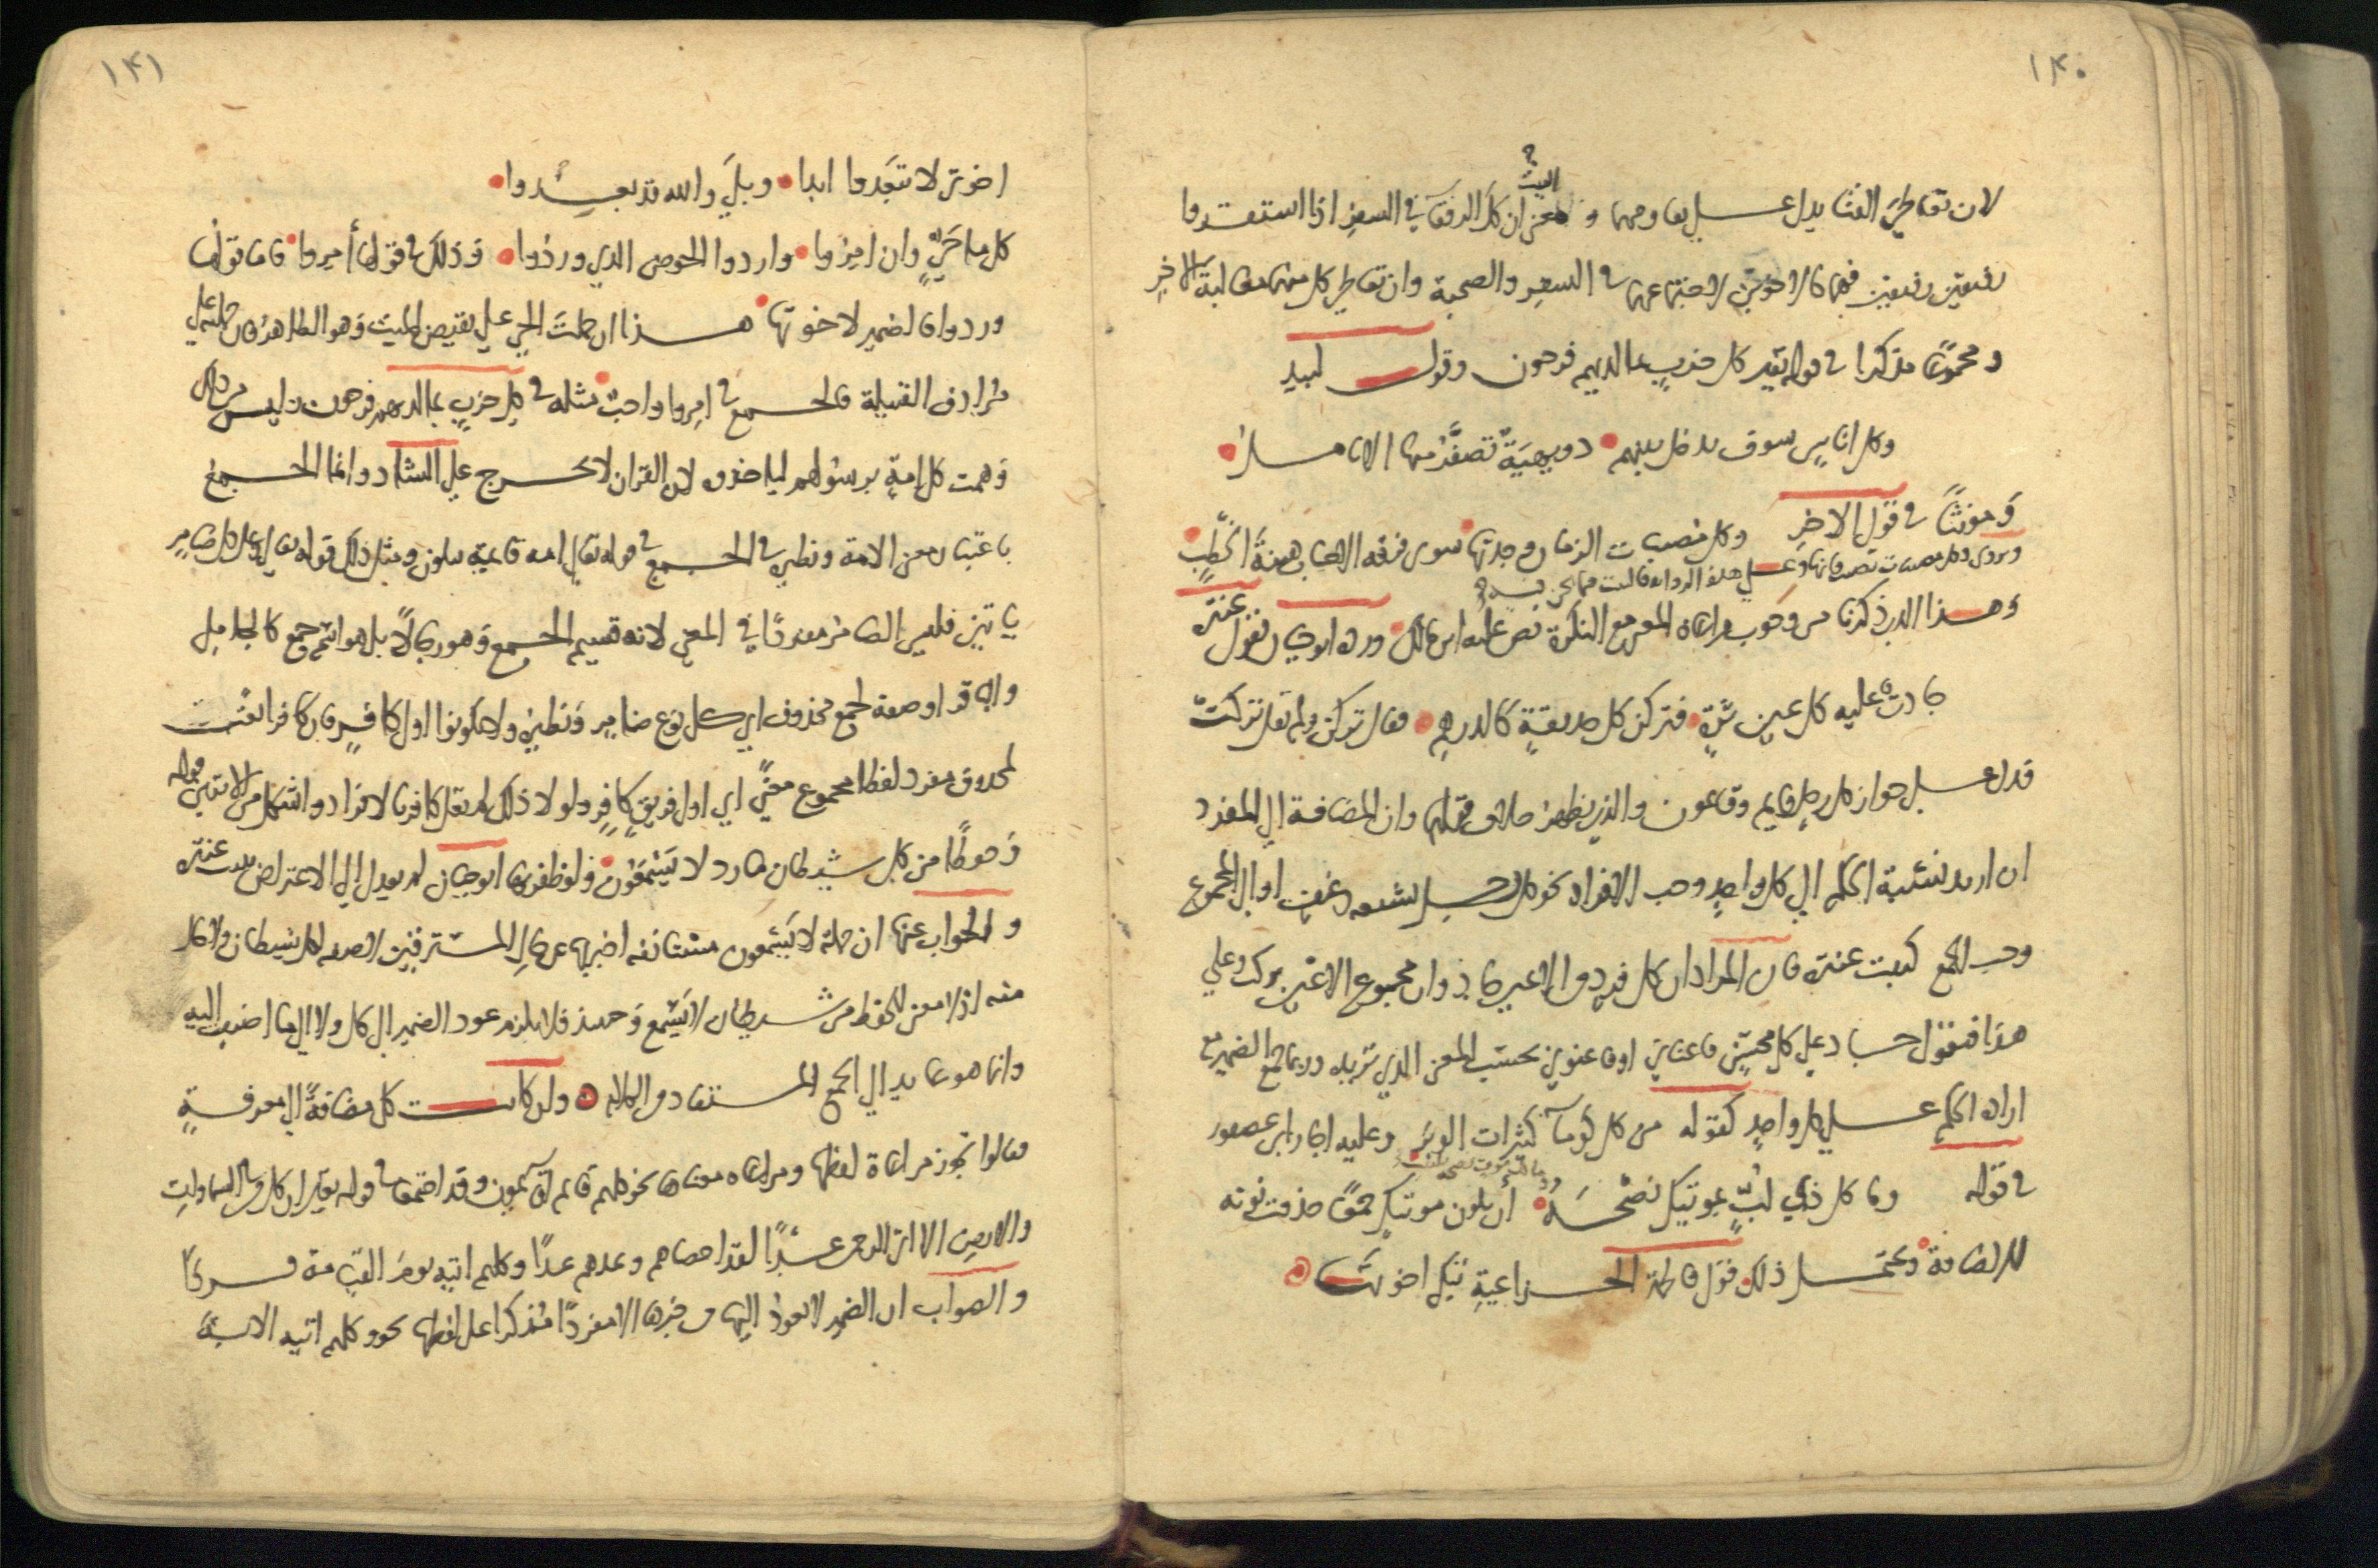 ١٤٠
لان تعاطي القنا يدل على تقاومهما و معنى البيت ان كل الرفقاء في السفر اذا استقروا
رفيقين رفيقين فهما كالاخوين لاجتماعهما في السفر والصحبة وان تعاطي كل منهما مغالبة الاخر
ومجموعًا مذكرا في قوله تعالى كل حزبٍ بما لديهم فرحون وقول لبيد
وكل اناسٍ سوف يدخل بينهم دويهيةٌ تصفرُّ منها الانامل
وَمونثًا في قول الاخر وكل مصيبات الزمان وجدتها سوى فرقة الاحباب هينةَ الخطبِ
ويروى وكل مصيبات تصيب فانها وعلى هذه الرواية فالبيت مما نحن فيه
وهذا الذي ذكرنا من وجوب مراعاة المعنى مع النكرة نص عليه ابن مالك ورده ابو حيان بقول عنترة
جادت عليه كل عينٍ ثرةٍ فتركن كل حديقةٍ كالدرهمِ فقال تركن ولم يقل تركت
فدل على جواز كل رجلٍ قايم وقايمون والذي يظهر خلاف قولهما وان المضافة الى المفرد
ان اريد نسبة الحكم الى كل واحدٍ وجب الافراد نحو كل رجل يشبعه رغيف او الى المجموع
وجب الجمع كبيت عنترة فان المراد ان كل فردٍ من الاعين جاد وان مجموع الاعين تركن وعلى
هذا فتقول جاد علي كل محسنٍ فاغناني او فاغنوني بحسب المعنى الذي تريده وربما جمع الضمير مع
ارادة الحكم على كل واحدٍ كقوله من كل كوماء كثيرات الوبر وعليه اجاز ابن عصفور
في قوله وما كل ذي لبٍّ بموتيك نصحه أن يكون موتيك جمعًا حذفت نونه
وما كل موت نصحه بلبيب
للاضافة ويحتمل ذلك قول فاطمة الخزاعية تبكي اخوتها
١٤١
اخوتي لا تبعدوا ابدا وبلى والله قد بعدوا
كل ما حيٍّ وان امروا واردوا الحوض الذي وردوا وذلك في قولها أمروا فاما قولها
وردوا فالضمير لاخوتها هذا ان حملت الحي على نقيض الميت وهو الظاهر فان حملته على
مرادف القبيلة فالجمع في امروا واجب مثله في كل حزبٍ بما لديهم فرحون وليس من ذلك
وَهمت كل امةٍ برسولهم لياخذوه لان القران لا يخرج على الشاذ وانما الجمع
باعتبار معنى الامة ونظيره الجمع في قوله تعالى امة قايمة يتلون ومثل ذلك قوله تعالى وعلى كل ضامرٍ
ياتين فليس الضامر مفردًا في المعنى لانه قسيم الجمع وهو رجالًا بل هو اسم جمع كالجامل
والباقر او صفة لجمع محذوف اي كل نوع ضامرٍ ونظيره ولا تكونوا اول كافرٍ به فان كافرا نعت
لمحذوف مفرد لفظا مجموع معنًى اي اول فريقٍ كافرٍ ولولا ذلك لم يقل كافر بالافراد واشكل من الايتين قوله
وَحفظًا من كل شيطان مارد لا يسمعون ولو ظفر بها ابو حيان لم يعدل الى الاعتراض ببيت عنترة
والجواب عنها ان جملة لا يسمعون مستانفة اخبر بها عن حال المسترقين لا صفة لكل شيطان ولا حال
منه اذ لا معنى للحفظ من شيطان لا يسمع وحينئذ فلا يلزم عود الضمير الى كل ولا الى ما اضيف اليه
وانما هو عايد الى الجمع المستفاد من الكلام وان كانت كل مضافةً الى معرفةٍ
فقالوا يجوز مراعاة لفظها ومراعاة معناها نحو كلهم قايم او قايمون وقد اجتمعا في قوله تعالى ان كل من في السماوات
والارض الا اتي الرحمن عبدًا لقد احصاهم وعدهم عدًا وكلهم اتيه يوم القيامة فردًا
والصواب ان الضمير لا يعود اليها من خبرها الا مفردًا مذكرا على لفظها نحو وكلهم اتيه الاية